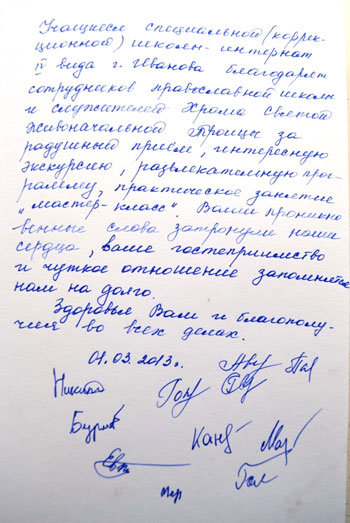 Учащиеся специальной (коррек-
ционной) школы-интернат
IV вида г. Иванова благодарят
сотрудников православной школы
и служителей Храма Святой
Живоначальной Троицы за
радушный приём, интересную
экскурсию, развлекательную про-
грамму, практическое занятие
„мастер-класс". Ваши проникно
венные слова затронули наши
сердца, Ваше гостеприимство
и чуткое отношение запомнятся
нам на долго.
Здоровья Вам и благополу-
чия во всех делах.
01.03.2013г.